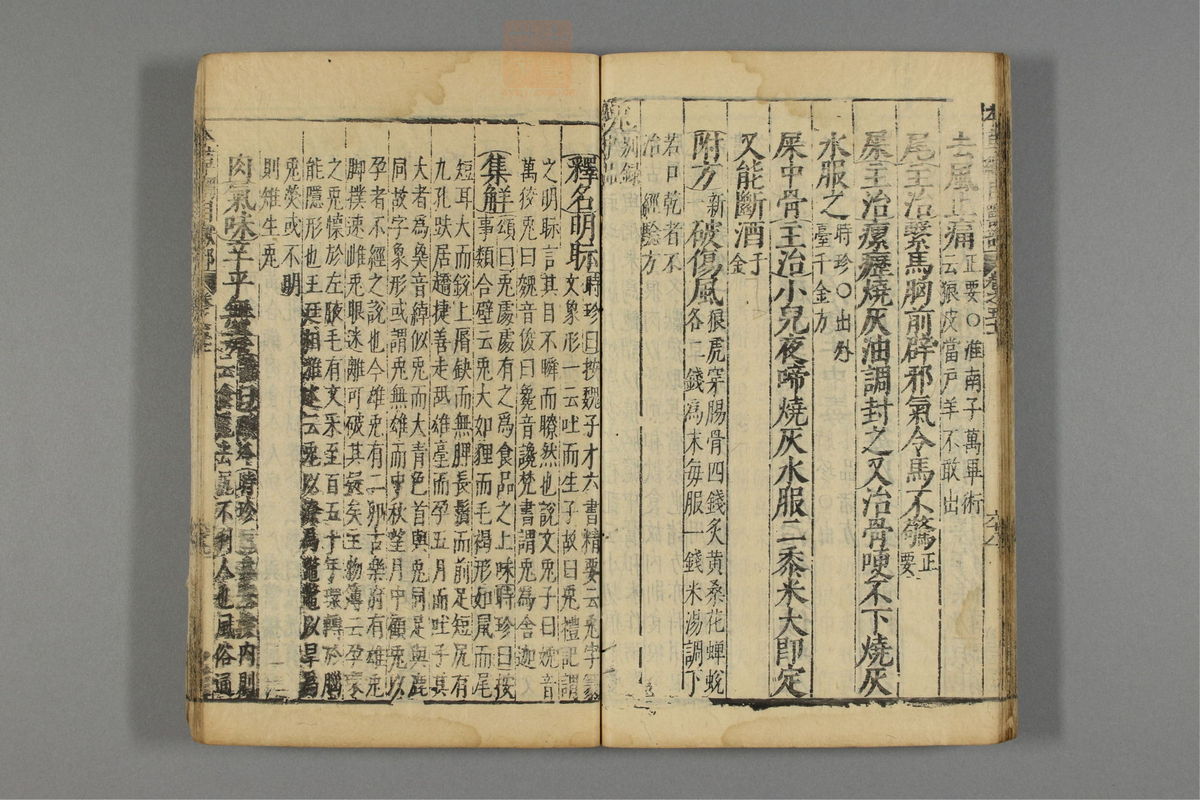 去風止痛正要○淮南子萬畢術
云狼皮當戶羊不敢出
尾主治繫馬胸前辟邪氣令馬不驚正
要
屎主治瘰癧燒灰油調封之又治骨哽不下燒灰
水服之時珍○出外
臺千金方
屎中骨主治小兒夜啼燒灰水服二黍米大即定
又能斷酒千
金
附方新一破傷風狼虎穿腸骨四錢炙黃桑花蟬蛻
各二錢爲末每服一錢米湯調下
若口乾者不
治 經驗方
兔別錄
釋名明眎時珍曰按魏子才六書精要云兔字篆
文象形一云吐而生子故曰兔禮記謂
之明眎言其目不瞬而瞭然也說文兔子曰娩音
萬狡兔曰 音俊曰毚音讒梵書謂兔爲舍迦
集解頌曰兔處處有之爲食品之上味時珍曰按
事類合璧云兔大如貍而毛褐形如鼠而尾
短耳大而銳上脣缺而無脾長鬚而前足短尻有
九孔趺居趫捷善走舐雄毫而孕五月而吐子其
大者爲㲋音綽似兔而大青色首與兔同足與鹿
同故字象形或謂兔無雄而中秋望月中顧兔以
孕者不經之說也今雄兔有二卵古樂府有雄兔
脚撲速雌兔眼迷離可破其疑矣主物簿云孕環
之兔懷於左腋毛有文采至百五十年環轉於腦
能隱形也王廷相雅述云兔以潦爲鱉鱉以旱爲
兔熒惑不明
則雉生兔
肉氣味辛平無毒
云食兔去尻不利人也風俗通